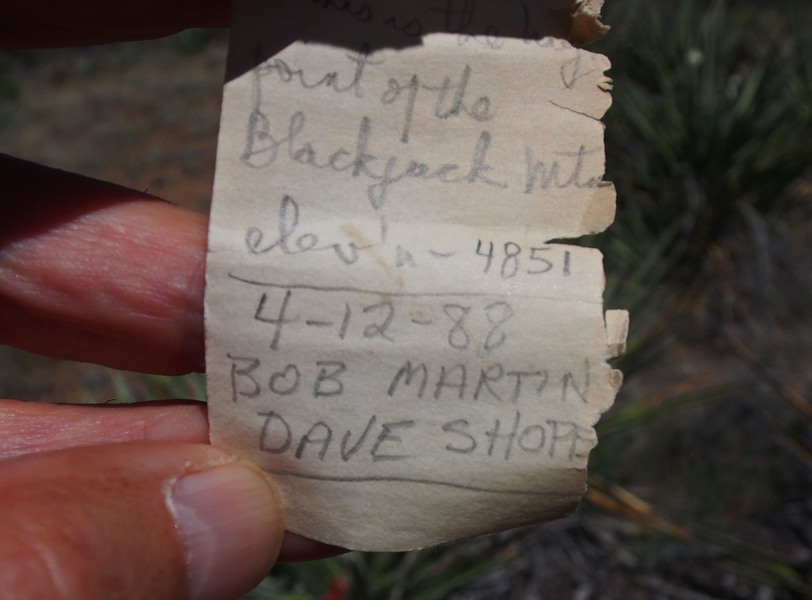 This is the high
point of the
Blackjack Mts
elev'n - 4851
4-12-88
BOB MARTIN
DAVE SHOPE